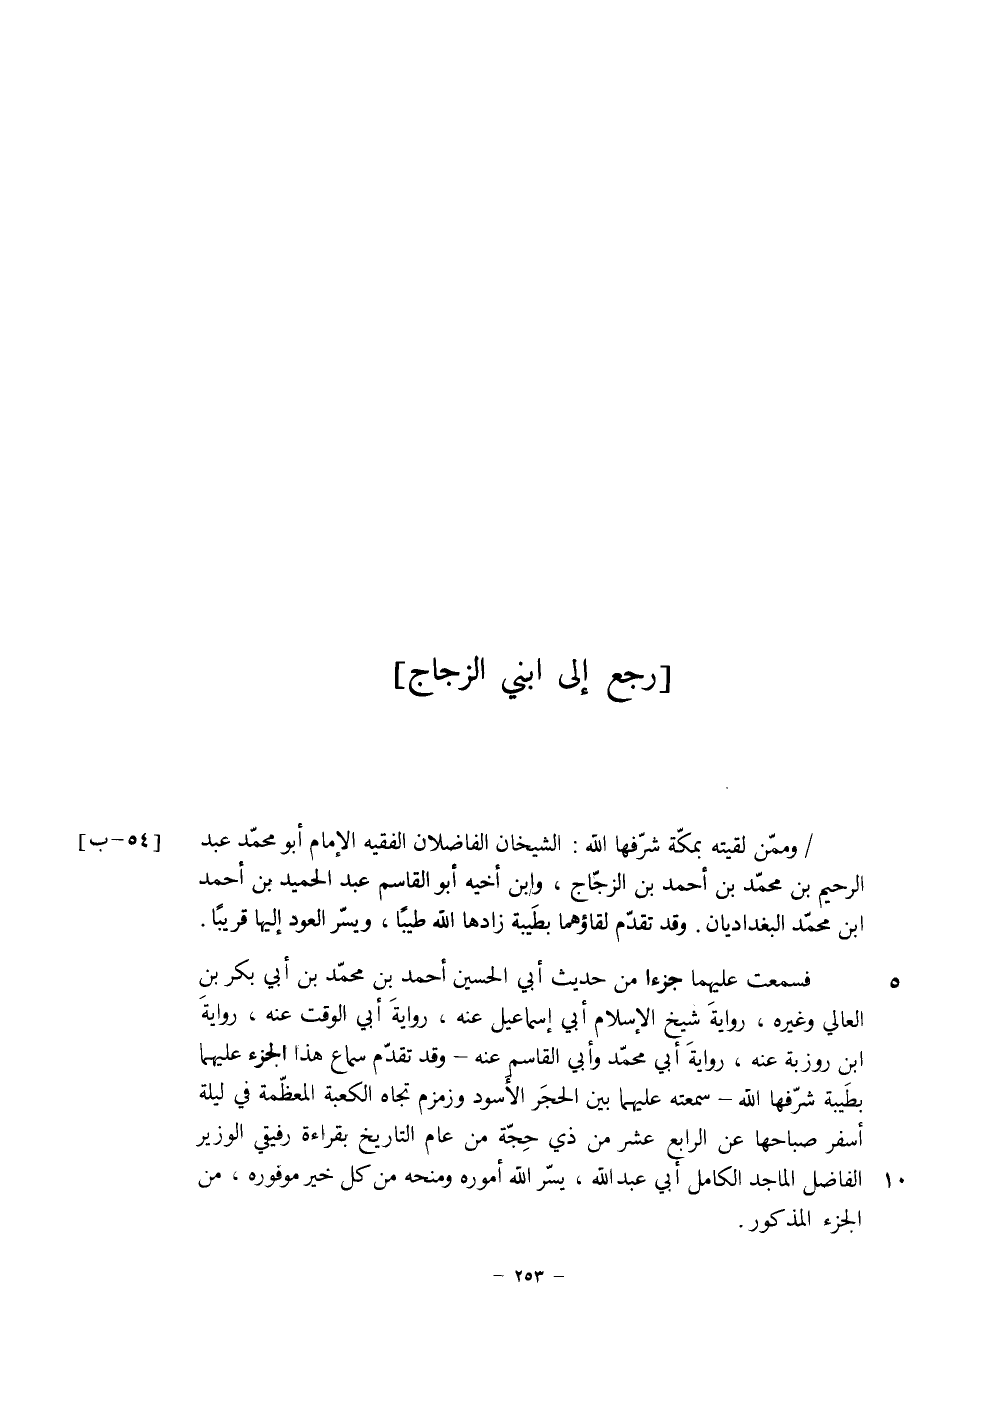 [رجع إلى ابني الزجاج]
/ وممّن لقيته بمكّة شرّفها الله : الشيخان الفاضلان الفقيه الإمام أبو محمّد عبد [٥٤-ب]
الرحيم بن محمّد بن أحمد بن الزجّاج ، وابن أخيه أبو القاسم عبد الحميد بن أحمد
ابن محمّد البغداديان . وقد تقدّم لقاؤهما بطَيبة زادها الله طيبًا ، ويسّر العود إليها قريبًا .
فسمعت عليهما جزءا من حديث أبي الحسين أحمد بن محمّد بن أبي بكر بن ٥
العالي وغيره ، روايةَ شيخ الإسلام أبي إسماعيل عنه ، روايةَ أبي الوقت عنه ، روايةَ
ابن روزبة عنه ، روايةَ أبي محمد وأبي القاسم عنه – وقد تقدّم سماع هذا الجزء عليهما
بطَيبة شرّفها الله – سمعته عليهما بين الحجَر الأَسود وزمزم تجاه الكعبة المعظّمة في ليلة
أسفر صباحها عن الرابع عشر من ذي حِجّة من عام التاريخ بقراءة رفيقي الوزير
الفاضل الماجد الكامل أبي عبد الله ، يسّر الله أموره ومنحه من كل خير موفوره ، من ١٠
الجزء المذكور .
– ٢٥٣ –